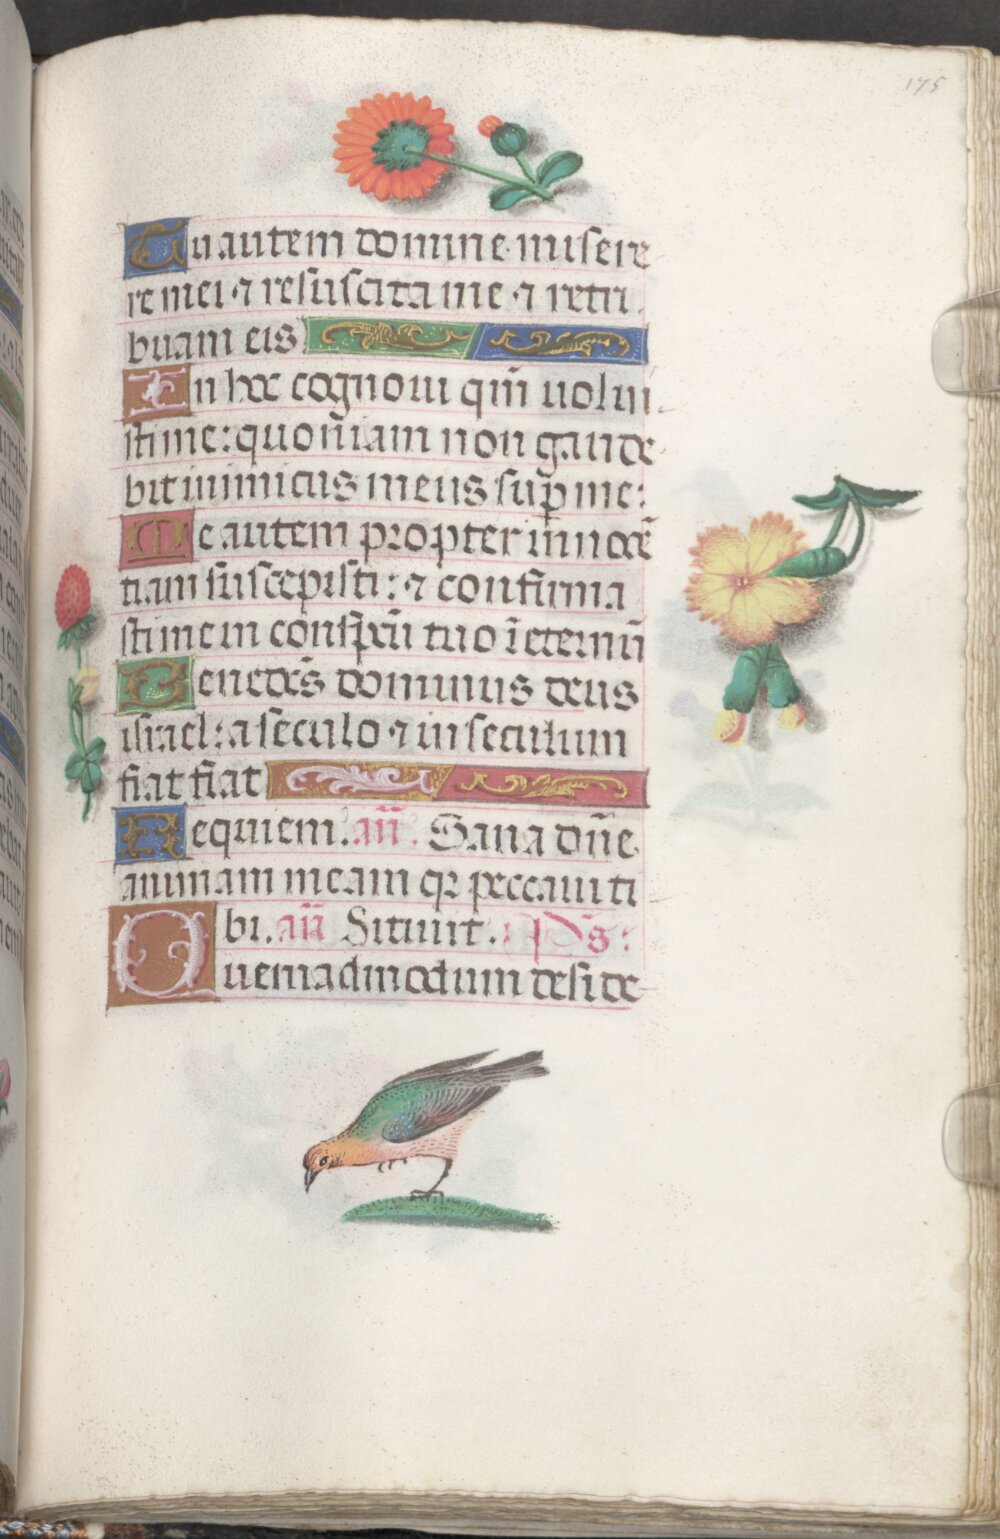 175
Tu autem domine misere
re mei ⁊ resuscita me ⁊ retri
buam eis
In hoc cognoui qm̄ uolui
sti me: quoniam non gaude
bit inimicus meus sup̄ me:
Me autem propter innocē
tiam suscepisti: ⁊ confirma
sti me in conspectu tuo ī eternū
Benedc̄s dominus deus
israel: a seculo ⁊ in seculum
fiat fiat
Requiem. an̄. Sana dn̄e
animam meam qꝛ peccaui ti
bi. an̄ Sitiuit. Ps:
Quemadmodum deside